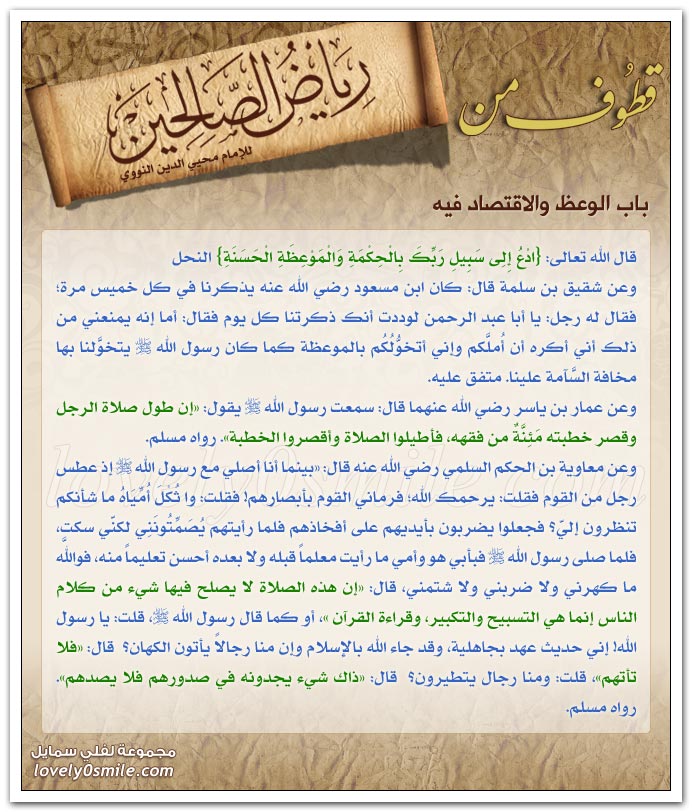 قطوف من
رياض الصالحين
للإمام محيي الدين النووي
باب الوعظ والاقتصاد فيه
قال الله تعالى: {ادْعُ إِلى سَبِيلِ رَبِّكَ بِالْحِكْمَةِ وَالْمَوْعِظَةِ الْحَسَنَةِ} النحل
وعن شقيق بن سلمة قال: كان ابن مسعود رضي الله عنه يذكرنا في كل خميس مرة؛
فقال له رجل: يا أبا عبد الرحمن لوددت أنك ذكرتنا كل يوم فقال: أما إنه يمنعني من
ذلك أني أكره أن أُملَّكم وإني أتخوَّلُكُم بالموعظة كما كان رسول الله ﷺ يتخوَّلنا بها
مخافة السَّآمة علينا. متفق عليه.
وعن عمار بن ياسر رضي الله عنهما قال: سمعت رسول الله ﷺ يقول: «إن طول صلاة الرجل
وقصر خطبته مَئِنَّةٌ من فقهه، فأطيلوا الصلاة وأقصروا الخطبة». رواه مسلم.
وعن معاوية بن الحكم السلمي رضي الله عنه قال: «بينما أنا أصلي مع رسول الله ﷺ إذ عطس
رجل من القوم فقلت: يرحمك الله؛ فرماني القوم بأبصارهم! فقلت: وا ثُكْلَ أُمِّيَاهُ ما شأنكم
تنظرون إليّ؟ فجعلوا يضربون بأيديهم على أفخاذهم فلما رأيتهم يُصَمِّتُونَنِي لكنّي سكتٍّ،
فلما صلى رسول الله ﷺ فبأبي هو وأمي ما رأيت معلماً قبله ولا بعده أحسن تعليماً منه، فوالله
ما كهرني ولا ضربني ولا شتمني، قال: «إن هذه الصلاة لا يصلح فيها شيء من كلام
الناس إنما هي التسبيح والتكبير، وقراءة القرآن »، أو كما قال رسول الله ﷺ، قلت: يا رسول
الله! إني حديث عهد بجاهلية، وقد جاء الله بالإسلام وإن منا رجالاً يأتون الكهان؟ قال: «فلا
تأتهم»، قلت: ومنا رجال يتطيرون؟ قال: «ذاك شيء يجدونه في صدورهم فلا يصدهم».
رواه مسلم.
مجموعة لفلي سمايل
lovely0smile.com